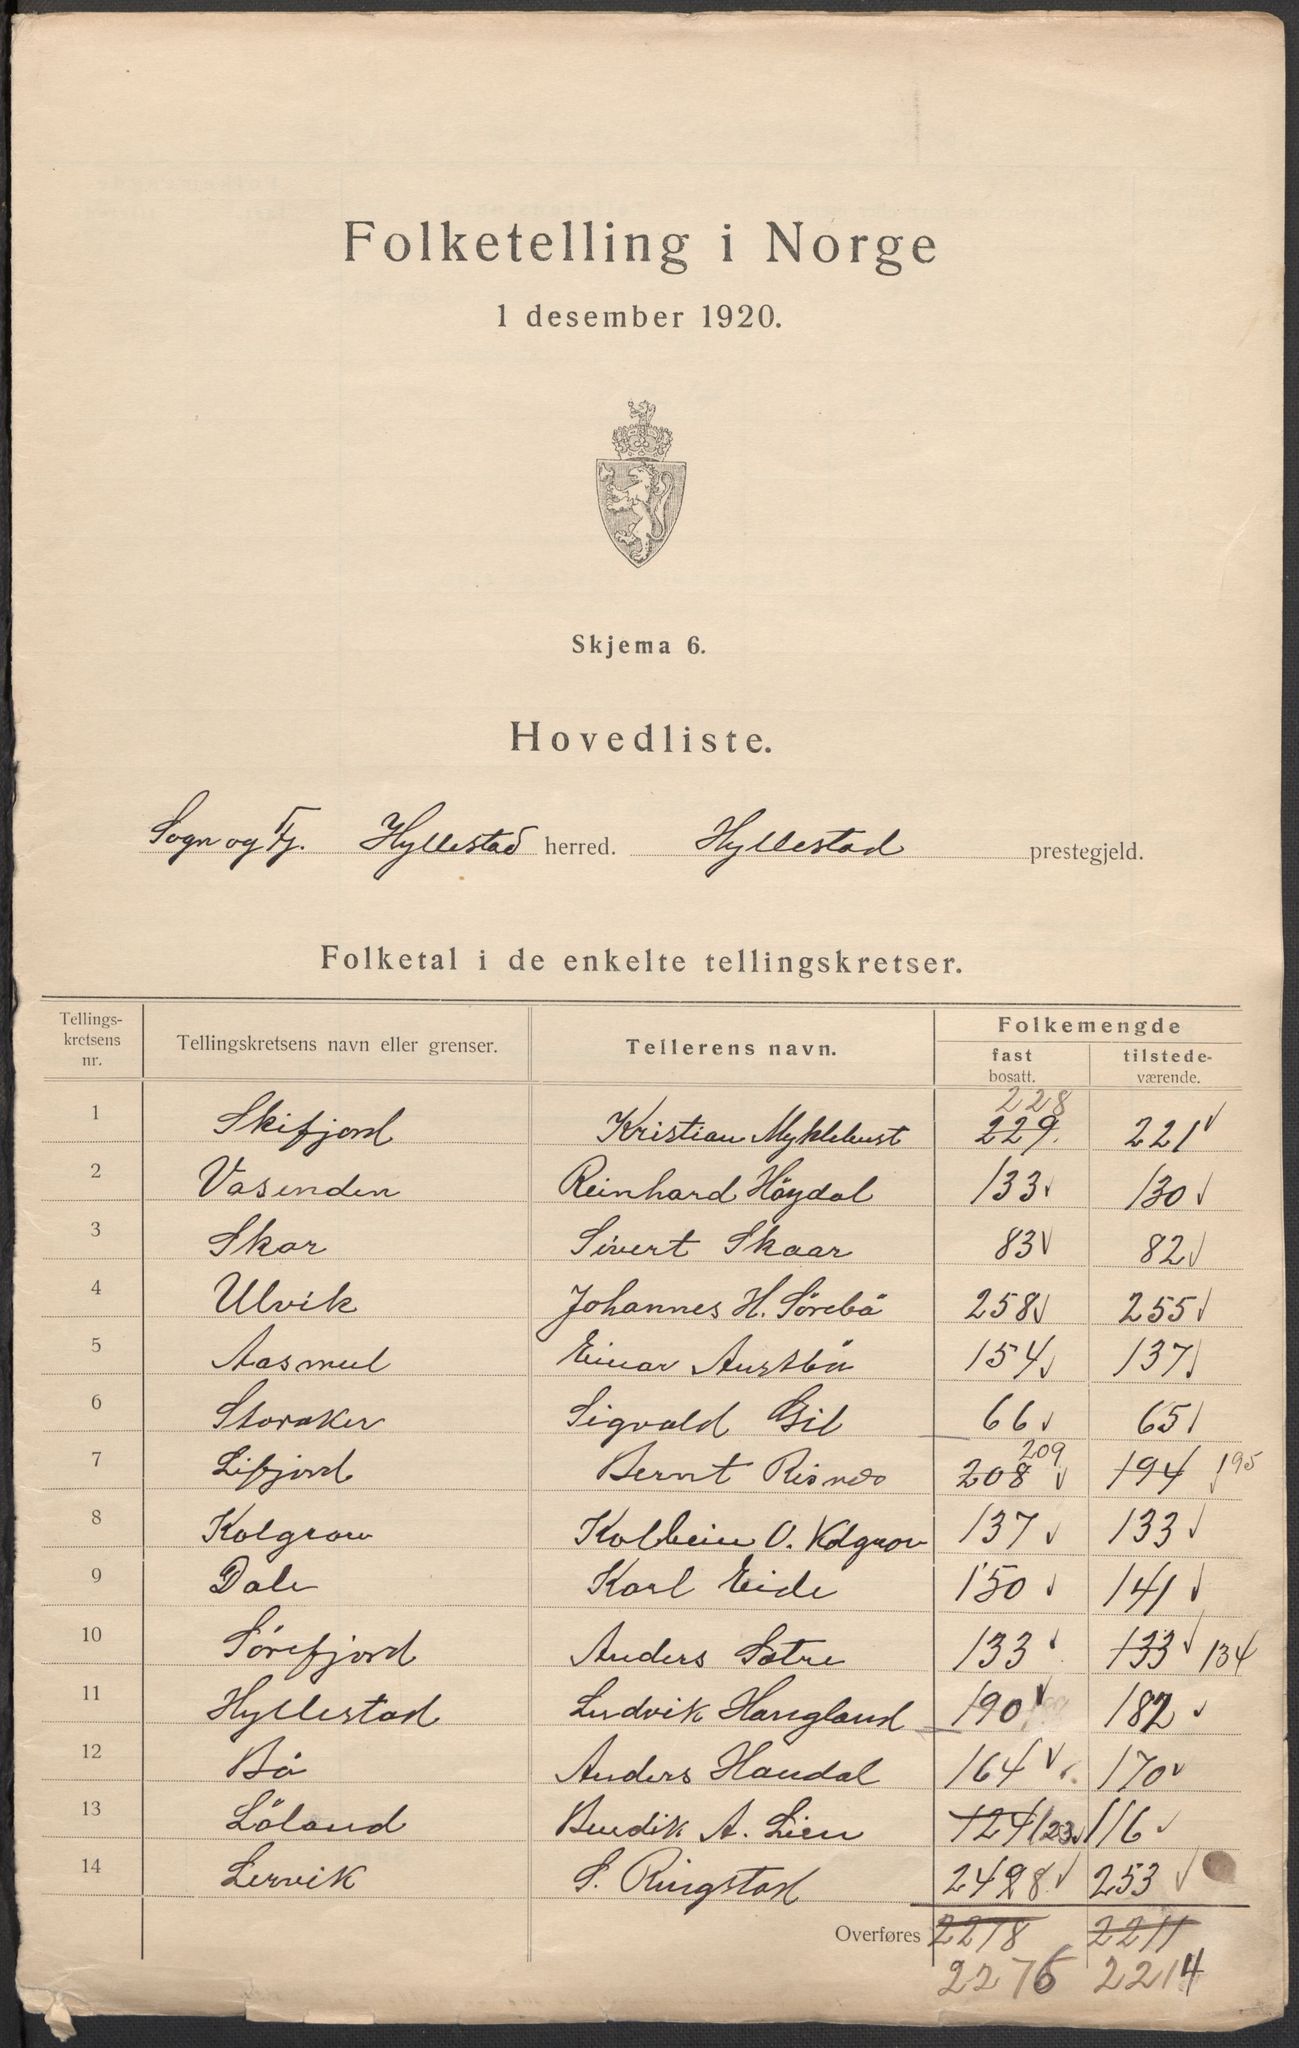 Folketelling i Norge
1 desember 1920.
Skjema 6.
Hovedliste.
Sogn og Fj. Hyllestad herred. Hyllestad prestegjeld.
Folketal i de enkelte tellingskretser.
Tellings-kretsens nr. Tellingskretsens navn eller grenser. Tellerens navn. Folkemengde fast bosatt. tilstede-værende.
228
1 Skifjord Kristian Myklebust 229 221
2 Vasenden Reinhard Höydal 133 130
3 Skar Sivert Skaar 83 82
4 Ulvik Johannes H. Sörebö 258 255
5 Aasmul Einar Austbö 154 137
6 Storaker Sigvald Gil 66 65
7 Lifjord Bernt Risnes 208 209 194 195
8 Kolgrov Kolbein O. Kolgrov 137 133
9 Dale Karl Eide 150 141
10 Sörefjord Anders Sætre 133 133 134
11 Hyllestad Ludvik Haugland 190 182
12 Bö Anders Haudal 164 170
13 Löland Bendik A. Lien 124 123 116
14 Lervik S. Ringstad 253
Overføres 2278 2211
2276 2214